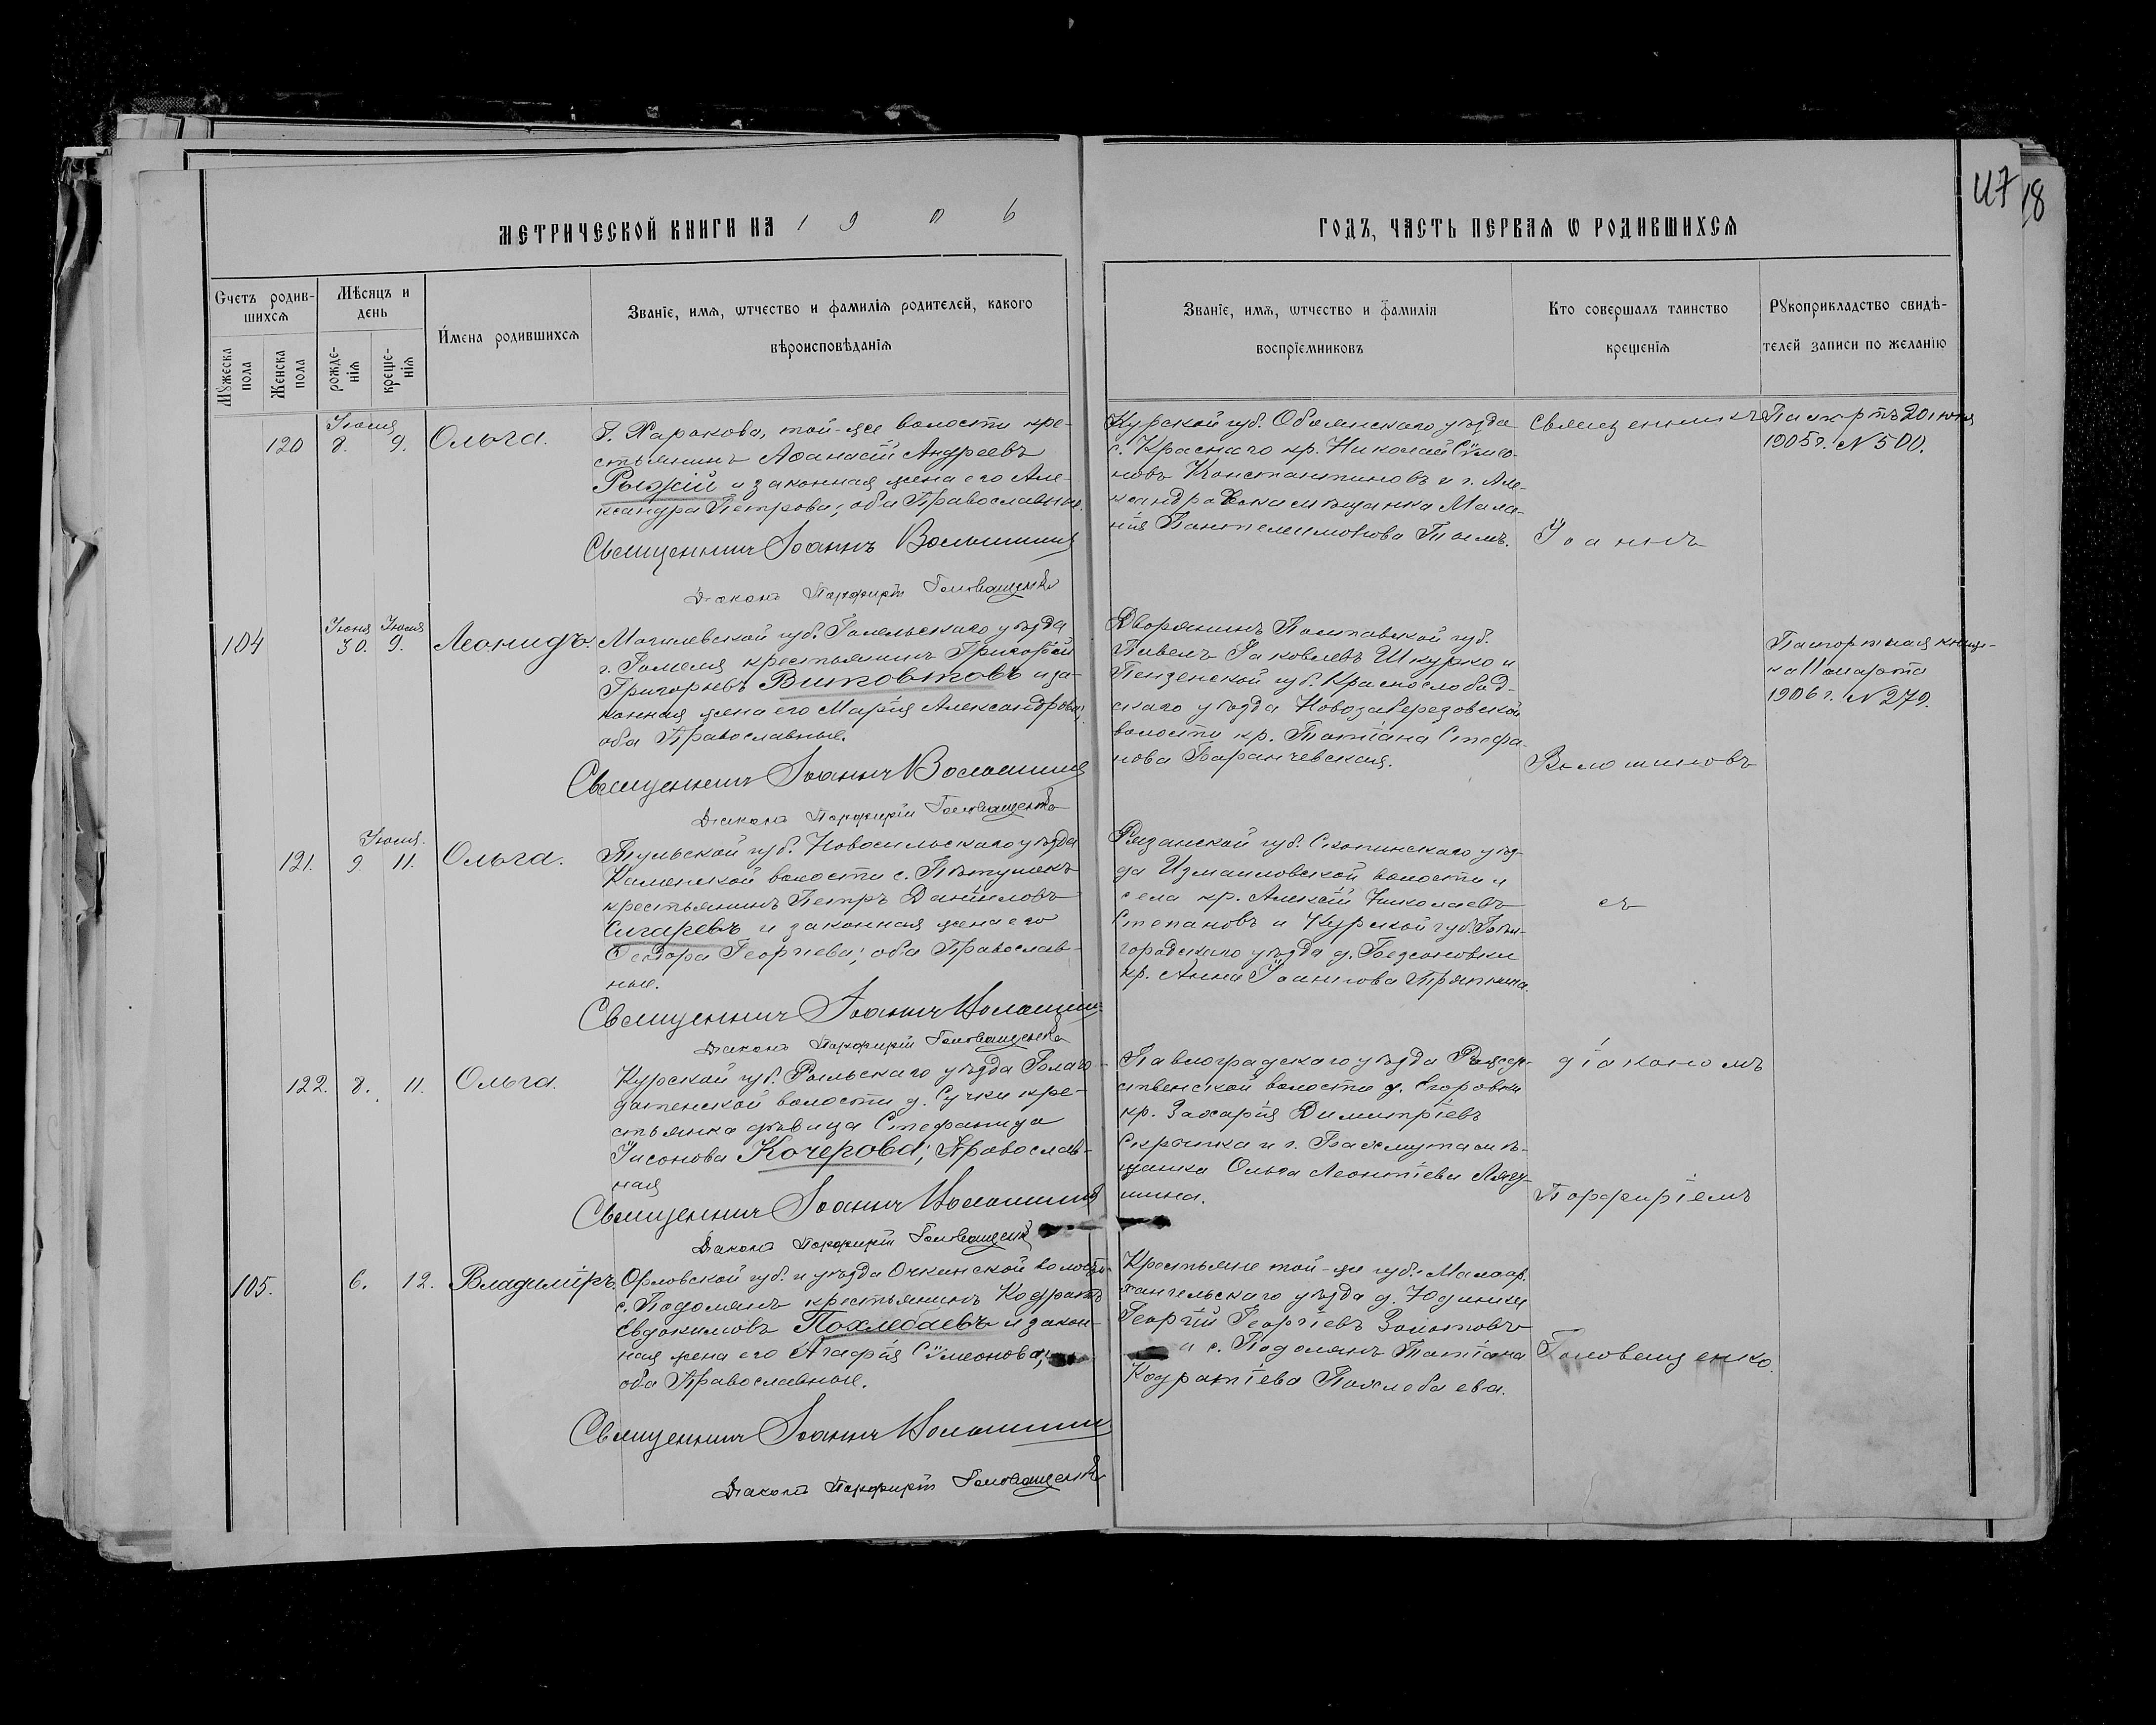 117 18
МЕТРИЧЕСКОЙ КНИГИ НА 1906
ГОДЪ, ЧАСТЬ ПЕРВАѦ Ѡ РОДИВШИХСѦ
Счетъ родив-
шихсѧ
Мѣсѧцъ и
день
Имена родившихсѧ
Званіе, имѧ, ѿтчество и фамилія родителей, какого
вѣроисповѣданіѧ
Мꙋжеска пола
Женска пола
рожде-
нія
креще-
нія
Званіе, имѧ, ѿтчество и фамилія
воспріемниковъ
Кто совершалъ таинство
крещеніѧ
Рꙋкоприкладство свидѣ-
телей записи по желанію
Іюля
120 8. 9. Ольга.
Г. Харькова, той-же волости кре-
стьянинъ Аѳанасій Андреевъ
Рыжій и законная жена его Але-
ксандра Петрова; оба Православные.
Священникъ Іоаннъ Волошинъ
Діаконъ Порфирій Головащенко
Курской губ. Обоянскаго уѣзда
с. Краснаго кр. Николай Сѵмео-
новъ Константиновъ и г. Але-
ксандровска мѣщанка Мала-
нія Пантелеимонова
Священникъ
Іоаннъ
Паспортъ 20 іюня
1905 г. N 500.
Іюня Іюля
104 30. 9. Леонидъ.
Могилевской губ. Гомельскаго уѣзда
г. Гомеля крестьянинъ Григорій
Григорьевъ Витовтовъ и за-
конная жена его Марія Александрова;
оба Православные.
Священникъ Іоаннъ Волошинъ
Діаконъ Порфирій Головащенко
Дворянинъ Полтавской губ.
Павелъ Яковлевъ Шкурко и
Пензенской губ. Краснослобод-
скаго уѣзда
волости кр. Татіана Стефа-
нова Баранчевская.
Волошиновъ
Паспортная книж-
ка 11 марта
1906 г. N 279.
Іюля.
121. 9. 11. Ольга.
Тульской губ. Новосильскаго уѣзда
Каменской волости с. Пѣтушекъ
крестьянинъ Петръ Даніиловъ
Сигаревъ и законная жена его
Ѳеодора Георгіева; оба Православ-
ные.
Священникъ Іоаннъ Волошинъ
Діаконъ Порфирій Головащенко
Рязанской губ. Скопинскаго уѣз-
да Измаиловской волости и
села кр. Алексій Николаевъ
Степановъ и Курской губ. Бѣл-
городскаго уѣзда д. Бедсоновки
кр. Анна Іоаннова Пряткина.
съ
122. 8. 11. Ольга.
Курской губ. Рыльскаго уѣзда Благо-
датенской волости д. Сучки кре-
стьянка дѣвица Стефанида
Кочерова; Православ-
ная
Священникъ Іоаннъ Волошинъ
Діаконъ Порфирій Головащенко
Павлоградскаго уѣзда Рожде-
ственской волости д. Егоровки
кр. Захарія Димитріевъ
Скрыпка и г. Бахмута мѣ-
щанка Ольга Леонтіева
діакономъ
Порфиріемъ
105. 6. 12. Владиміръ.
Орловской губ. и уѣзда Очкинской волости
с. Подолянъ крестьянинъ Кодратъ
Евдокимовъ Похлебаевъ и закон-
ная жена его Агафія Сѵмеонова;
оба Православные.
Священникъ Іоаннъ Волошинъ
Діаконъ Порфирій Головащенко
Крестьяне той-же губ. Малоар-
хангельскаго уѣзда д. Юдинки
Георгій Георгіевъ Золотовъ
и с. Подолянъ Татіана
Кодратіева Похлебаева.
Головащенко.